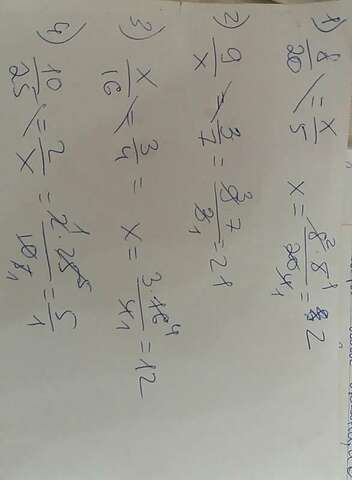 1) 8/20 = x/5 x = 8² · 5¹ / 20 4 1 = 2
2) 9/x = 3/7 = 9 · 7 / 3 1 = 21
3) x/16 = 3/4 = x = 3 · 16⁴ / 4 1 = 12
4) 10/25 = 2/x = 2¹ · 25⁵ / 10 5 1 = 5/1